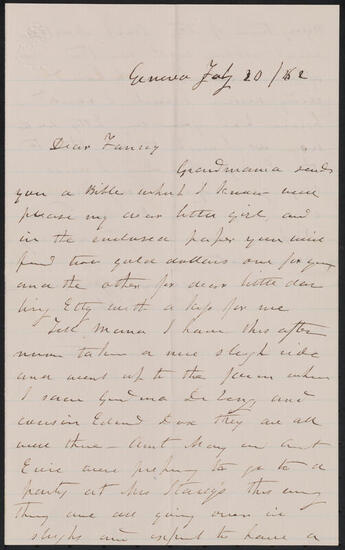 Geneva Feby 20/82
Dear Fanny
Grandmama sends
you a Bible which I know will
please my dear little girl, and
in the enclosed paper you will
find two gold dollars one for you
and the other for dear little dar
ling Etty with a kiss for me
Tell Mama I have this after
noon taken a nice sleigh ride
and went up to the farm where
I saw Grdma De Zeng and
cousin Edwd Dox they are all
well there - Aunt Mary and Aunt
Evie were preparing to go to a
party at Mrs this evng
they are all going over in
sleighs and expect to have a